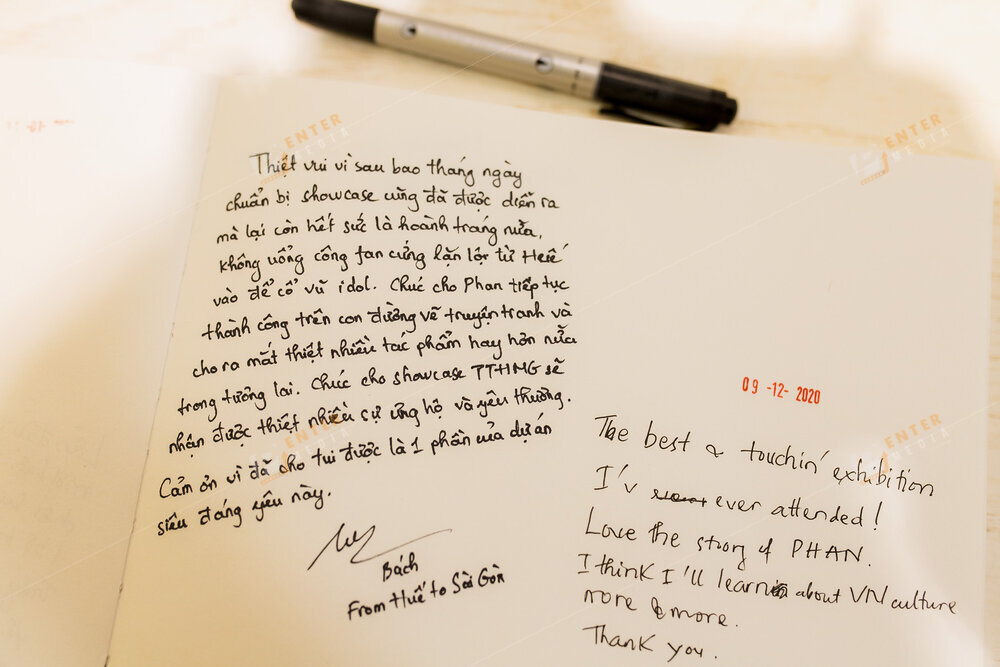 Thiệt vui vì sau bao tháng ngày
chuẩn bị showcase cũng đã được diễn ra
mà lại còn hết sức là hoành tráng nữa,
không uổng công fan cứng lặn lội từ Huế
vào để cổ vũ idol. Chúc cho Phan tiếp tục
thành công trên con đường vẽ truyện tranh và
cho ra mắt thiệt nhiều tác phẩm hay hơn nữa
trong tương lai. Chúc cho showcase TTHMG sẽ
nhận được thiệt nhiều sự ủng hộ và yêu thương.
Cảm ơn vì đã cho tui được là 1 phần của dự án
siêu đáng yêu này.
Bách
From Huế to Sài Gòn
09 -12- 2020
The best & touchin' exhibition
I'v ever attended!
Love the story of PHAN.
I think I'll learn about VN culture
more & more.
Thank you.
ENTER
MEDIA
ENTER
MEDIA
ENTER
MEDIA
ENTER
MEDIA